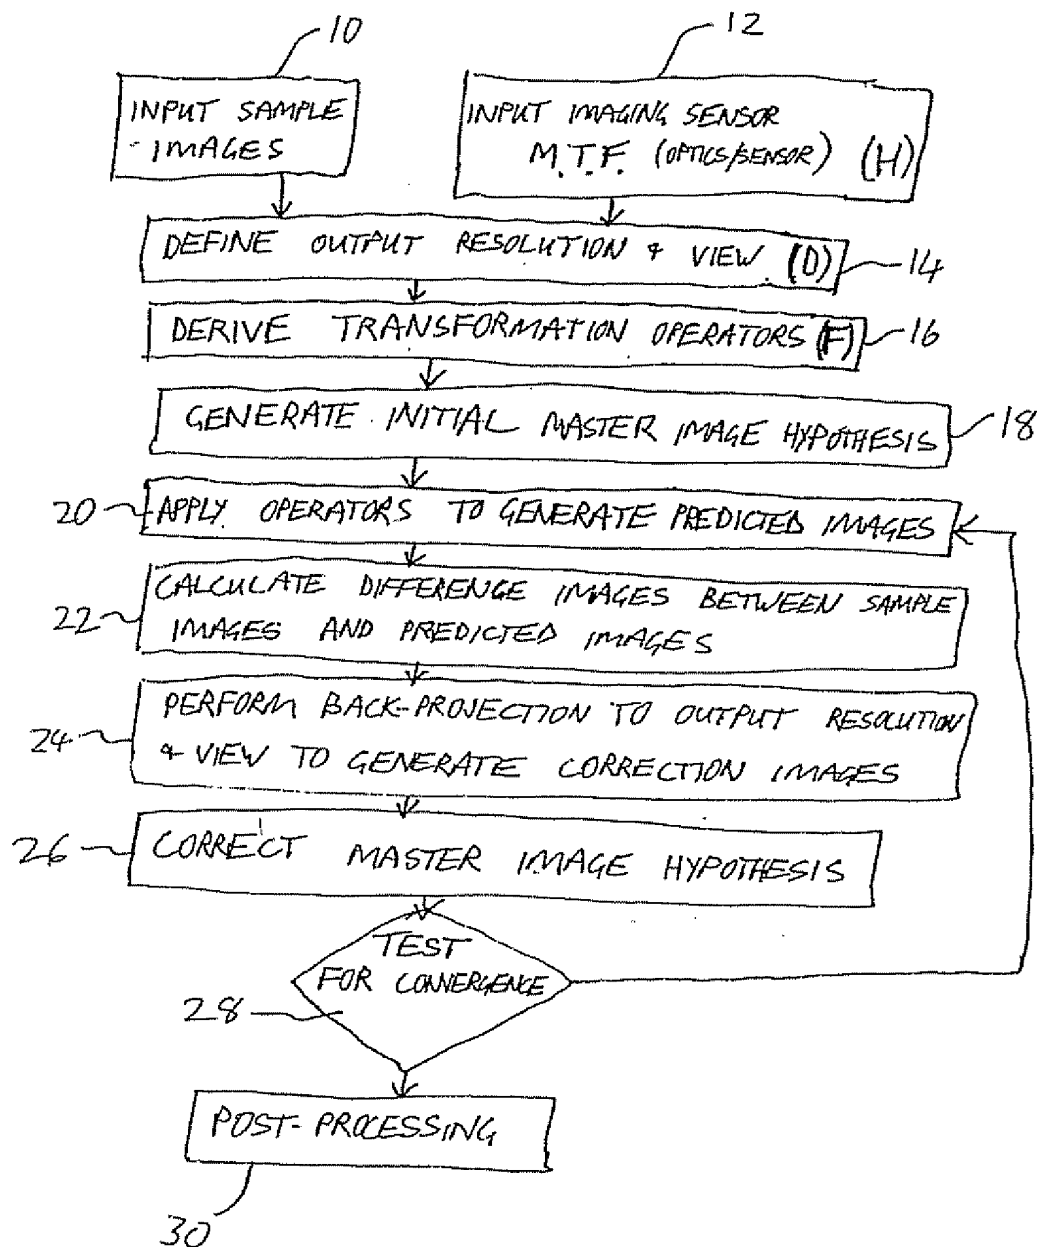 10
12
INPUT SAMPLE
IMAGES
INPUT IMAGING SENSOR
M.T.F. (OPTICS/SENSOR) (H)
DEFINE OUTPUT RESOLUTION & VIEW (D)
14
DERIVE TRANSFORMATION OPERATORS (F)
16
GENERATE INITIAL MASTER IMAGE HYPOTHESIS
18
20
APPLY OPERATORS TO GENERATE PREDICTED IMAGES
22
CALCULATE DIFFERENCE IMAGES BETWEEN SAMPLE
IMAGES AND PREDICTED IMAGES
24
PERFORM BACK-PROJECTION TO OUTPUT RESOLUTION
& VIEW TO GENERATE CORRECTION IMAGES
26
CORRECT MASTER IMAGE HYPOTHESIS
TEST
FOR CONVERGENCE
28
POST-PROCESSING
30